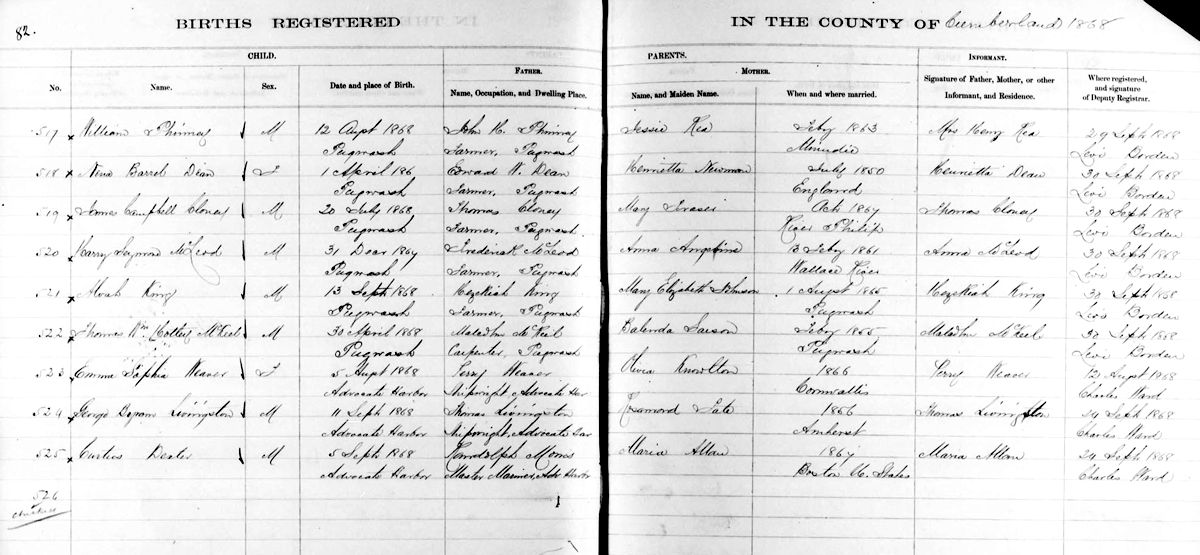 82.
BIRTHS REGISTERED IN THE COUNTY OF Cumberland 1868
CHILD. PARENTS. INFORMANT.
FATHER. MOTHER.
No. Name. Sex. Date and place of Birth. Name, Occupation, and Dwelling Place. Name, and Maiden Name. When and where married. Signature of Father, Mother, or other Informant, and Residence. Where registered, and signature of Deputy Registrar.
517 x William Phinney M 12 Augt 1868 John H. Phinney Jessie Rea Feby 1863 Mrs Henry Rea 29 Sept 1868
Pugwash Farmer, Pugwash Minudie Levi Borden
518 x Nina Barrel Dean F 1 April 186 Edward W. Dean Henrietta Newman July 1850 Henrietta Dean 30 Sept 1868
Pugwash Farmer, Pugwash England Levi Borden
519 x James Campbell Cloney M 20 July 1868 Thomas Cloney Mary Fraser Oct 1867 Thomas Cloney 30 Sept 1868
Pugwash Farmer, Pugwash River Philip Levi Borden
520 x Harry Seymore McLeod M 31 Decr 1867 Frederick McLeod Anna 13 Feby 1861 Anna McLeod 30 Sept 1868
Pugwash Farmer, Pugwash Wallace River Levi Borden
521 x King M 13 Sept 1868 Hezekiah King Mary Elizabeth Johnson 1 Augt 1865 Hezekiah King 30 Sept 1868
Pugwash Farmer, Pugwash Pugwash Levi Borden
522 x Thomas Wm M 30 April 1868 Feby 1865 30 Sept 1868
Pugwash Carpenter, Pugwash Pugwash Levi Borden
523 x Emma Sophia Weaver F 5 Augt 1868 Perry Weaver Olivia Knowlton 1866 Perry Weaver 12 Augt 1868
Advocate Harbor Shipwright, Advocate Har Cornwallis Charles Ward
524 x George Livingston M 11 Sept 1868 Thomas Livingston Rosamond 1866 Thomas Livingston 24 Sept 1868
Advocate Harbor Shipwright, Advocate Har Amherst Charles Ward
525 x Curtius Dexter M 5 Sept 1868 Randolph Maria Allan 1867 Maria 24 Sept 1868
Advocate Harbor Master Mariner, Adv Harbor Boston U. States Charles Ward
526